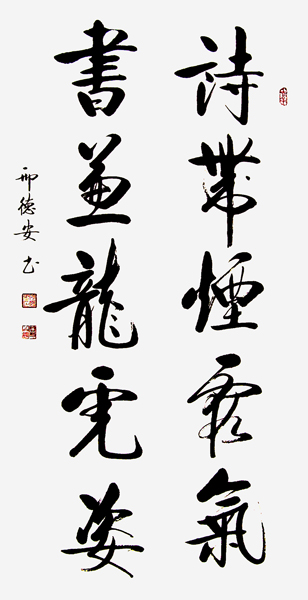 詩帶煙霞氣
書兼龍虎姿
邢德安书